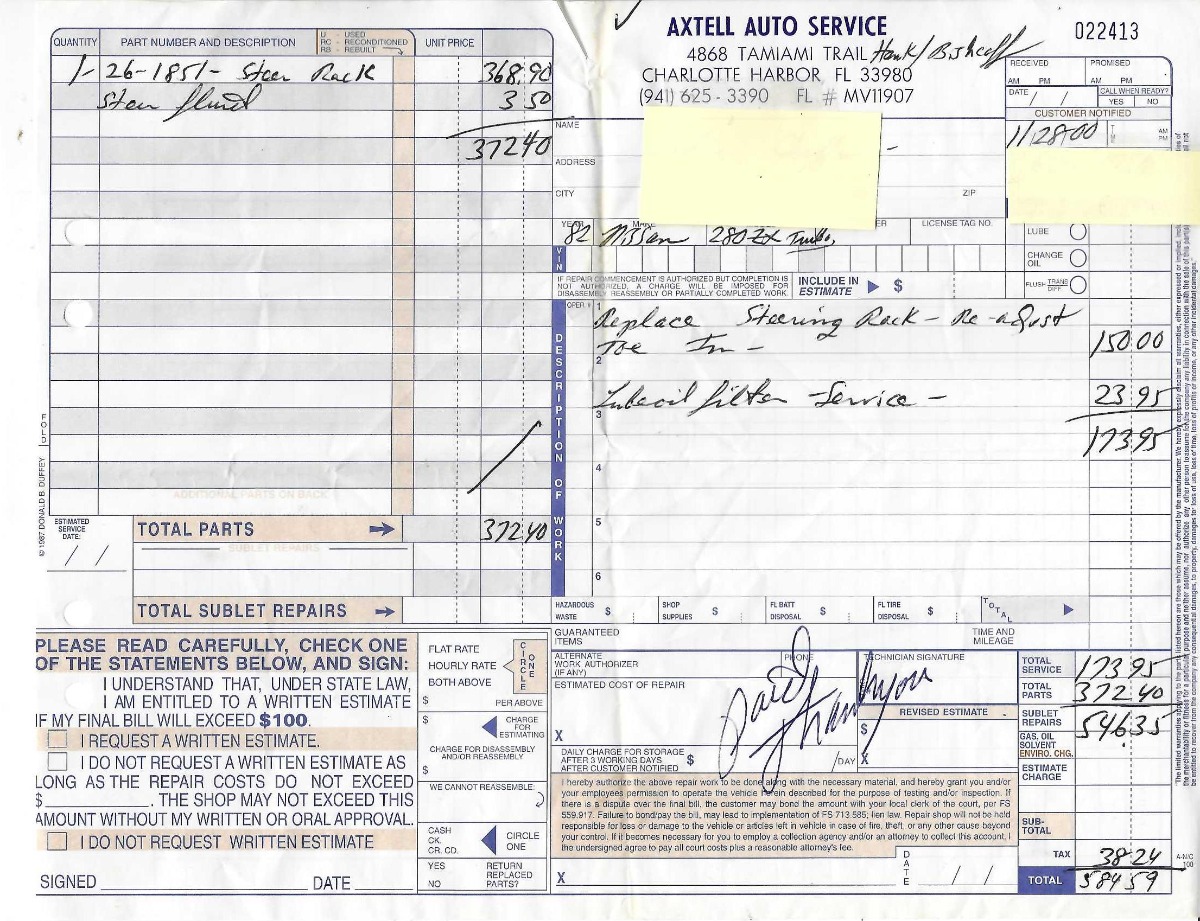 AXTELL AUTO SERVICE
4868 TAMIAMI TRAIL Hank/Bishoff
CHARLOTTE HARBOR, FL 33980
(941) 625 - 3390 FL # MV11907
022413
RECEIVED PROMISED
AM PM AM PM
DATE / / CALL WHEN READY?
YES NO
CUSTOMER NOTIFIED
11/28-00 AM PM
QUANTITY PART NUMBER AND DESCRIPTION U - USED RC - RECONDITIONED RB - REBUILT UNIT PRICE
1- 26-1851- Steer Rack 368.90
Steer fluid 3 50
372 40
NAME
ADDRESS
CITY ZIP
YEAR MAKE LICENSE TAG NO.
82 Nissan 280ZX Turbo,
VIN
LUBE
CHANGE OIL
FLUSH TRANS DIFF
IF REPAIR COMMENCEMENT IS AUTHORIZED BUT COMPLETION IS
NOT AUTHORIZED, A CHARGE WILL BE IMPOSED FOR
DISASSEMBLY REASSEMBLY OR PARTIALLY COMPLETED WORK.
INCLUDE IN ESTIMATE $
OPER #
DESCRIPTION OF WORK
1 Replace Steering Rack - Re-adjust
Toe In - 150.00
2
Lube oil filter - Service - 23.95
3
173.95
4
5
6
FOLD
© 1987 DONALD B. DUFFEY
ADDITIONAL PARTS ON BACK
ESTIMATED SERVICE DATE: / /
TOTAL PARTS 372.40
SUBLET REPAIRS
TOTAL SUBLET REPAIRS
HAZARDOUS WASTE $ SHOP SUPPLIES $ FL BATT DISPOSAL $ FL TIRE DISPOSAL $ TOTAL
PLEASE READ CAREFULLY, CHECK ONE
OF THE STATEMENTS BELOW, AND SIGN:
I UNDERSTAND THAT, UNDER STATE LAW,
I AM ENTITLED TO A WRITTEN ESTIMATE
IF MY FINAL BILL WILL EXCEED $100.
I REQUEST A WRITTEN ESTIMATE.
I DO NOT REQUEST A WRITTEN ESTIMATE AS
LONG AS THE REPAIR COSTS DO NOT EXCEED
$ . THE SHOP MAY NOT EXCEED THIS
AMOUNT WITHOUT MY WRITTEN OR ORAL APPROVAL.
I DO NOT REQUEST WRITTEN ESTIMATE
SIGNED DATE
FLAT RATE
HOURLY RATE
BOTH ABOVE
CIRCLE ONE
$ PER ABOVE
$ CHARGE FOR ESTIMATING
CHARGE FOR DISASSEMBLY
AND/OR REASSEMBLY
$
WE CANNOT REASSEMBLE:
CASH
CK.
CR. CD.
CIRCLE ONE
YES
NO
RETURN REPLACED PARTS?
GUARANTEED ITEMS
TIME AND MILEAGE
ALTERNATE WORK AUTHORIZER (IF ANY)
PHONE
TECHNICIAN SIGNATURE
ESTIMATED COST OF REPAIR
X
REVISED ESTIMATE
$
X
Paid
Thank you
DAILY CHARGE FOR STORAGE
AFTER 3 WORKING DAYS
AFTER CUSTOMER NOTIFIED
$ /DAY
I hereby authorize the above repair work to be done along with the necessary material, and hereby grant you and/or
your employees permission to operate the vehicle herein described for the purpose of testing and/or inspection. If
there is a dispute over the final bill, the customer may bond the amount with your local clerk of the court, per FS
559.917. Failure to bond/pay the bill, may lead to implementation of FS 713.585; lien law. Repair shop will not be held
responsible for loss or damage to the vehicle or articles left in vehicle in case of fire, theft, or any other cause beyond
your control. If it becomes necessary for you to employ a collection agency and/or an attorney to collect this account, I
the undersigned agree to pay all court costs plus a reasonable attorney's fee.
X DATE / /
TOTAL SERVICE 173 95
TOTAL PARTS 372 40
SUBLET REPAIRS 546.35
GAS, OIL SOLVENT
ENVIRO. CHG.
ESTIMATE CHARGE
SUB-TOTAL
TAX 38.24
TOTAL 584.59
A-N/C 100